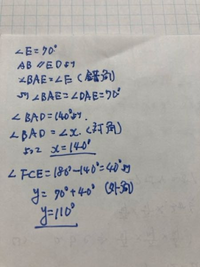 ∠E=70°
AB // EDより
∠BAE=∠E(錯角)
より ∠BAE=∠DAE=70°
∠BAD=140°より.
∠BAD=∠x.(対角)
よって x=140°
∠FCE=180-140=40°より
y=70°+40°(外角)
y=110°